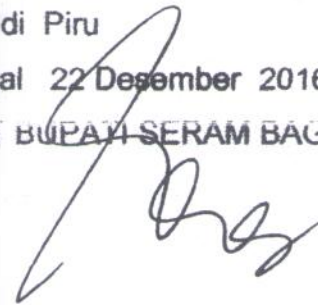 di Piru
al 22 Desember 2016
BUPATI SERAM BAG